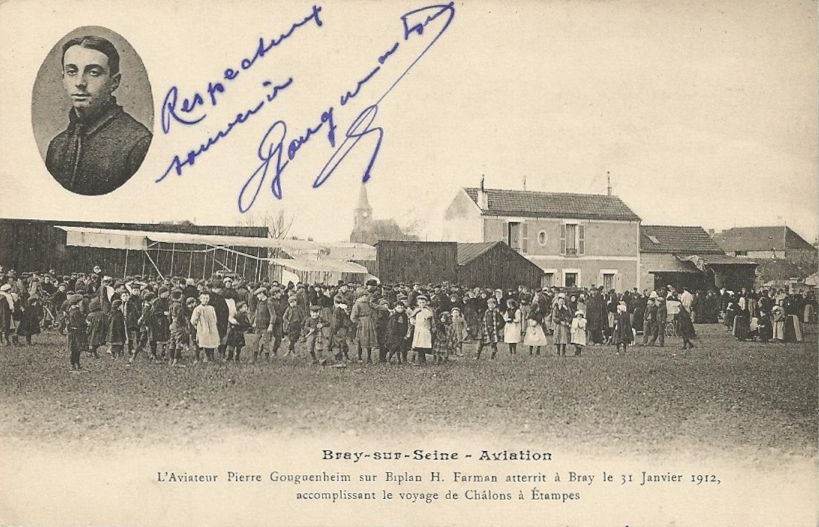 Respectueux
souvenir
Gouguenheim
Bray-sur-Seine - Aviation
L'Aviateur Pierre Gouguenheim sur Biplan H. Farman atterrit à Bray le 31 Janvier 1912,
accomplissant le voyage de Châlons à Étampes